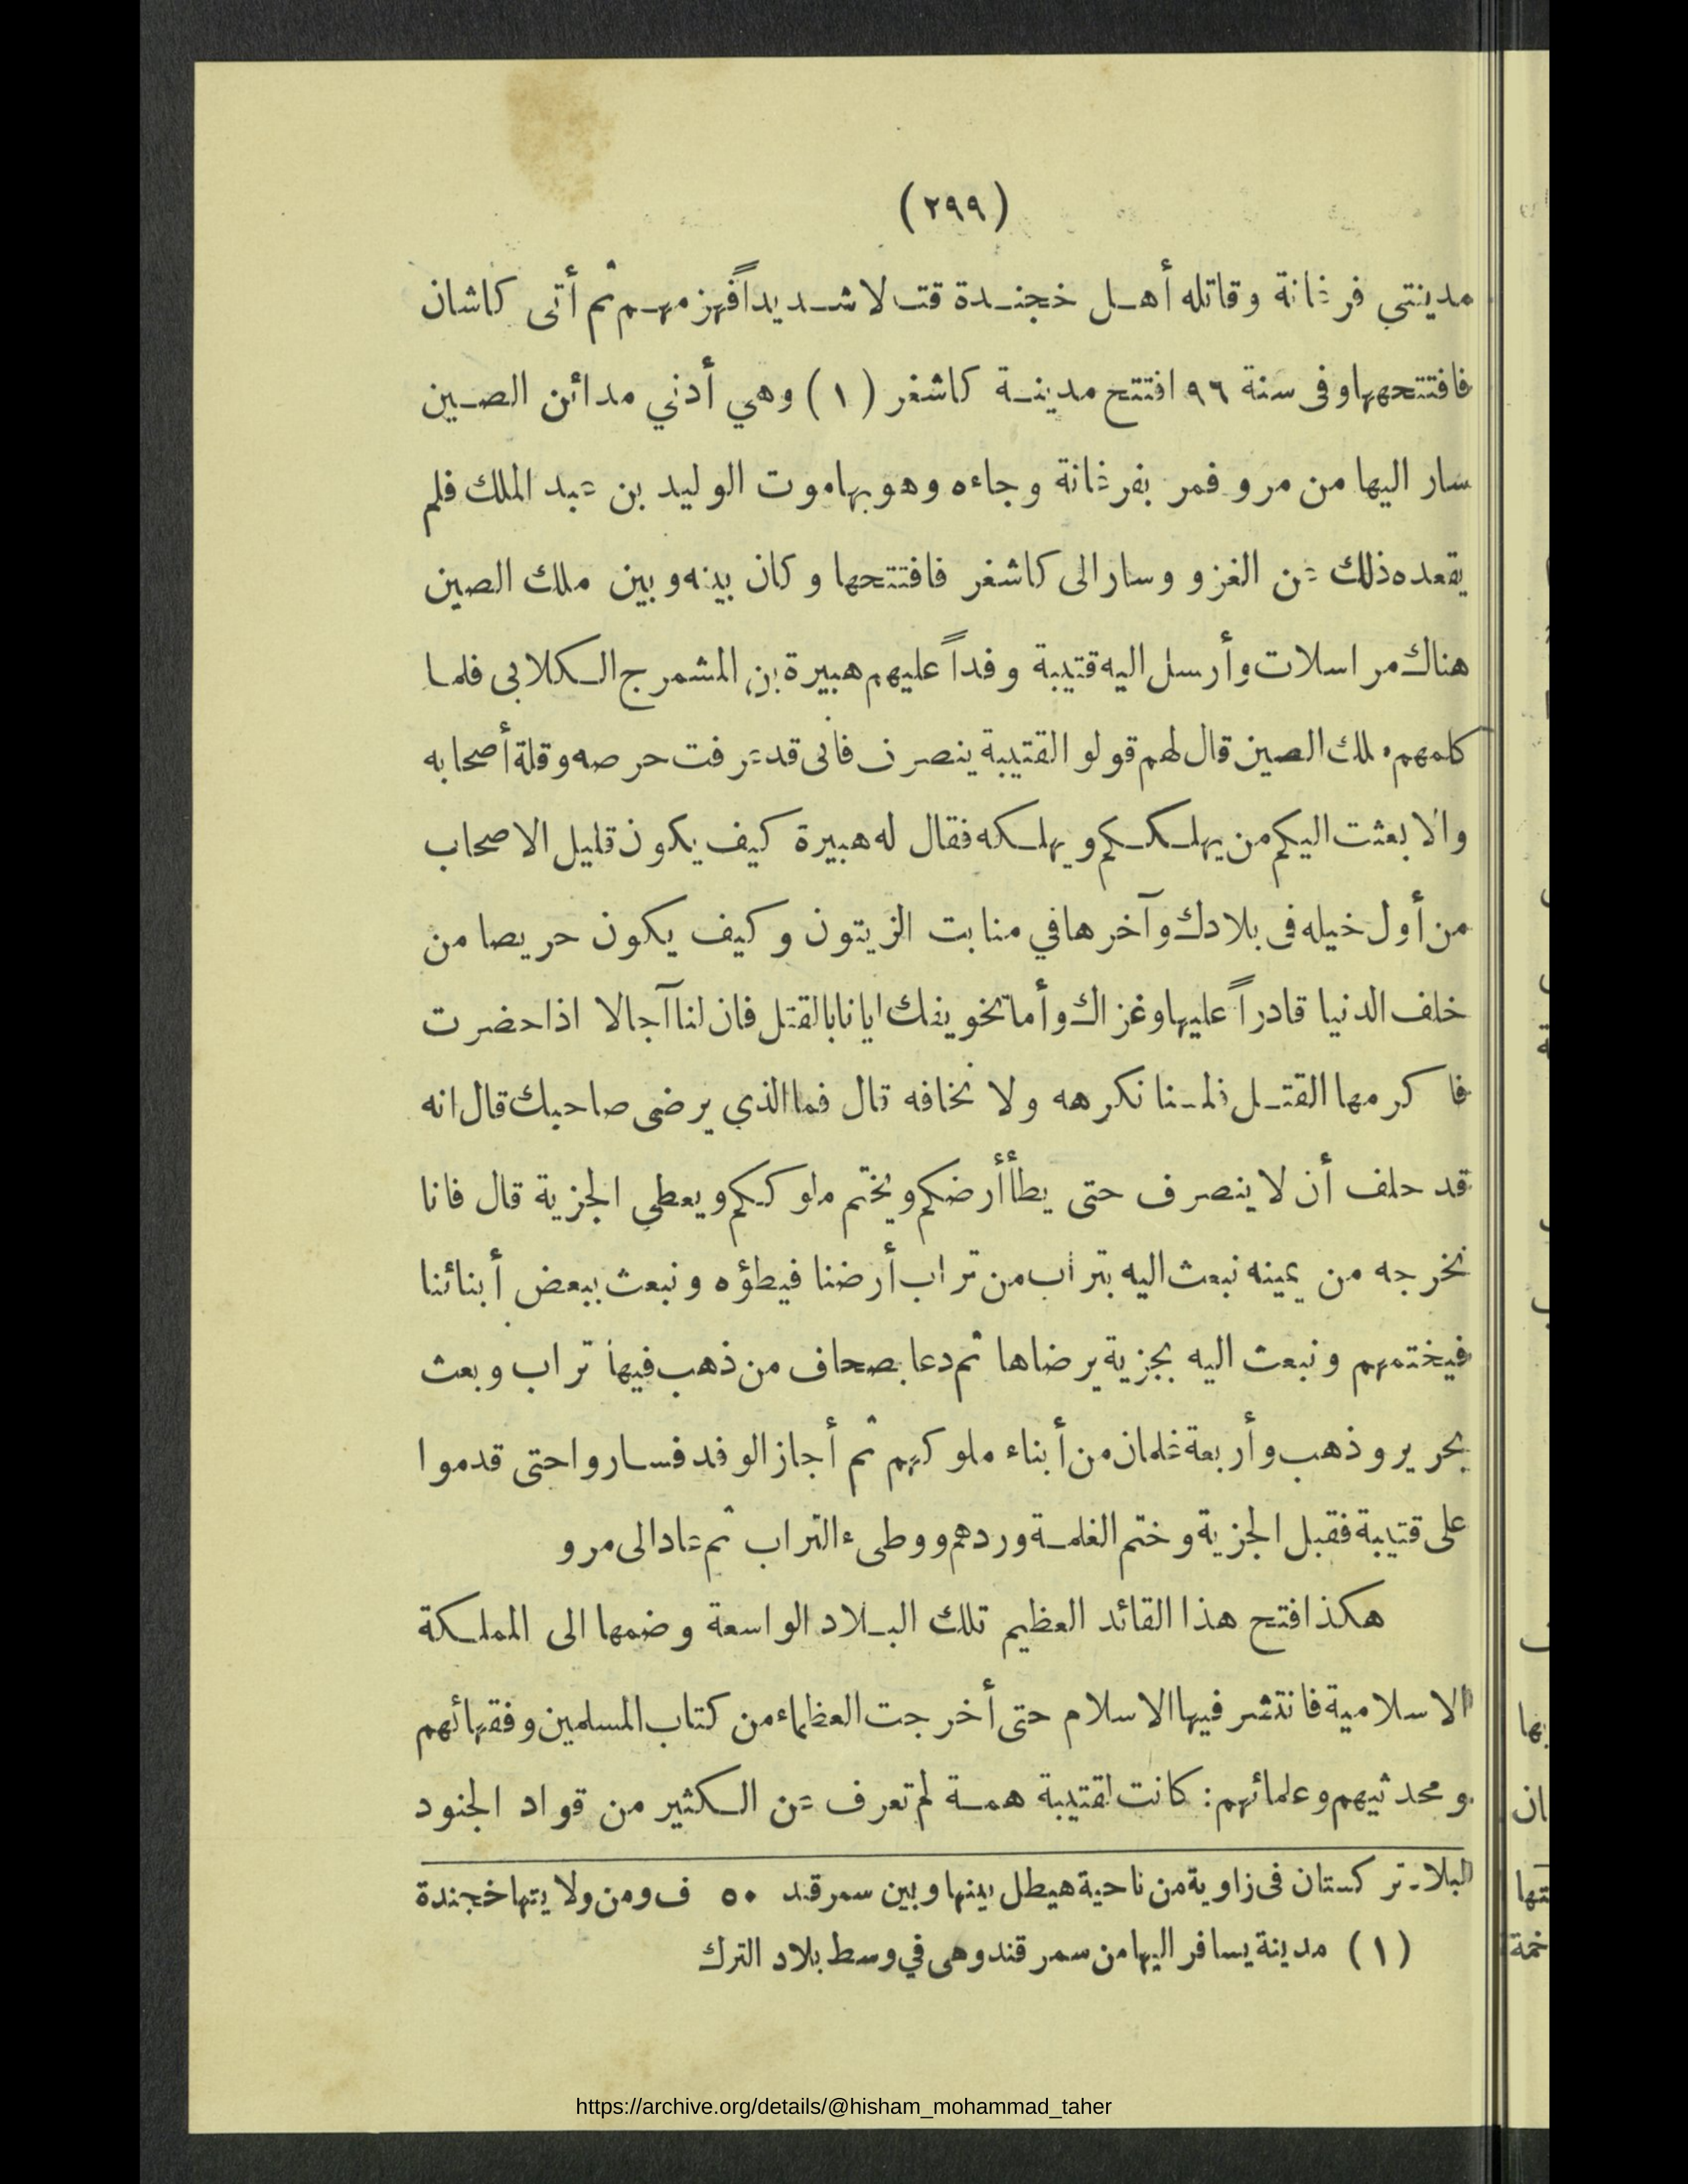 (٢٩٩)
مدينتي فرغانة وقاتله أهل خجندة قتالا شديداً فهزمهم ثم أتى كاشان
فافتتحها وفى سنة ٩٦ افتتح مدينة كاشغر (١) وهي أدني مدائن الصين
سار اليها من مرو فمر بفرغانة وجاءه وهو بها موت الوليد بن عبد الملك فلم
يقعده ذلك عن الغزو وسار الى كاشغر فافتتحها وكان بينه وبين ملك الصين
هناك مراسلات وأرسل اليه قتيبة وفداً عليهم هبيرة بن المشمرج الكلابى فلما
كلمهم ملك الصين قال لهم قولو القتيبة ينصرف فانى قد عرفت حرصه وقلة أصحابه
والا بعثت اليكم من يهلككم ويهلكه فقال له هبيرة كيف يكون قليل الاصحاب
من أول خيله فى بلادك وآخرها في منابت الزيتون وكيف يكون حريصا من
خلف الدنيا قادراً عليها وغزاك وأما تخويفك ايانا بالقتل فان لنا آجالا اذا حضرت
فاكرمها القتل فلسنا نكرهه ولا نخافه قال فما الذي يرضى صاحبك قال انه
قد حلف أن لا ينصرف حتى يطأ أرضكم ويختم ملوككم ويعطي الجزية قال فانا
نخرجه من يمينه نبعث اليه بتراب من تراب أرضنا فيطؤه ونبعث ببعض أبنائنا
فيختمهم ونبعث اليه بجزية يرضاها ثم دعا بصحاف من ذهب فيها تراب وبعث
بحرير وذهب وأربعة غلمان من أبناء ملوكهم ثم أجاز الوفد فساروا حتى قدموا
على قتيبة فقبل الجزية وختم الغلمة وردهم ووطىء التراب ثم عاد الى مرو
هكذا افتتح هذا القائد العظيم تلك البلاد الواسعة وضمها الى المملكة
الاسلامية فانتشر فيها الاسلام حتى أخرجت العظماء من كتاب المسلمين وفقهائهم
ومحدثيهم وعلمائهم: كانت لقتيبة همة لم تعرف عن الكثير من قواد الجنود
البلاد تركستان فى زاوية من ناحية هيطل بينها وبين سمرقند ٥٠ ف ومن ولايتها خجندة
(١) مدينة يسافر اليها من سمرقند وهى في وسط بلاد الترك
https://archive.org/details/@hisham_mohammad_taher